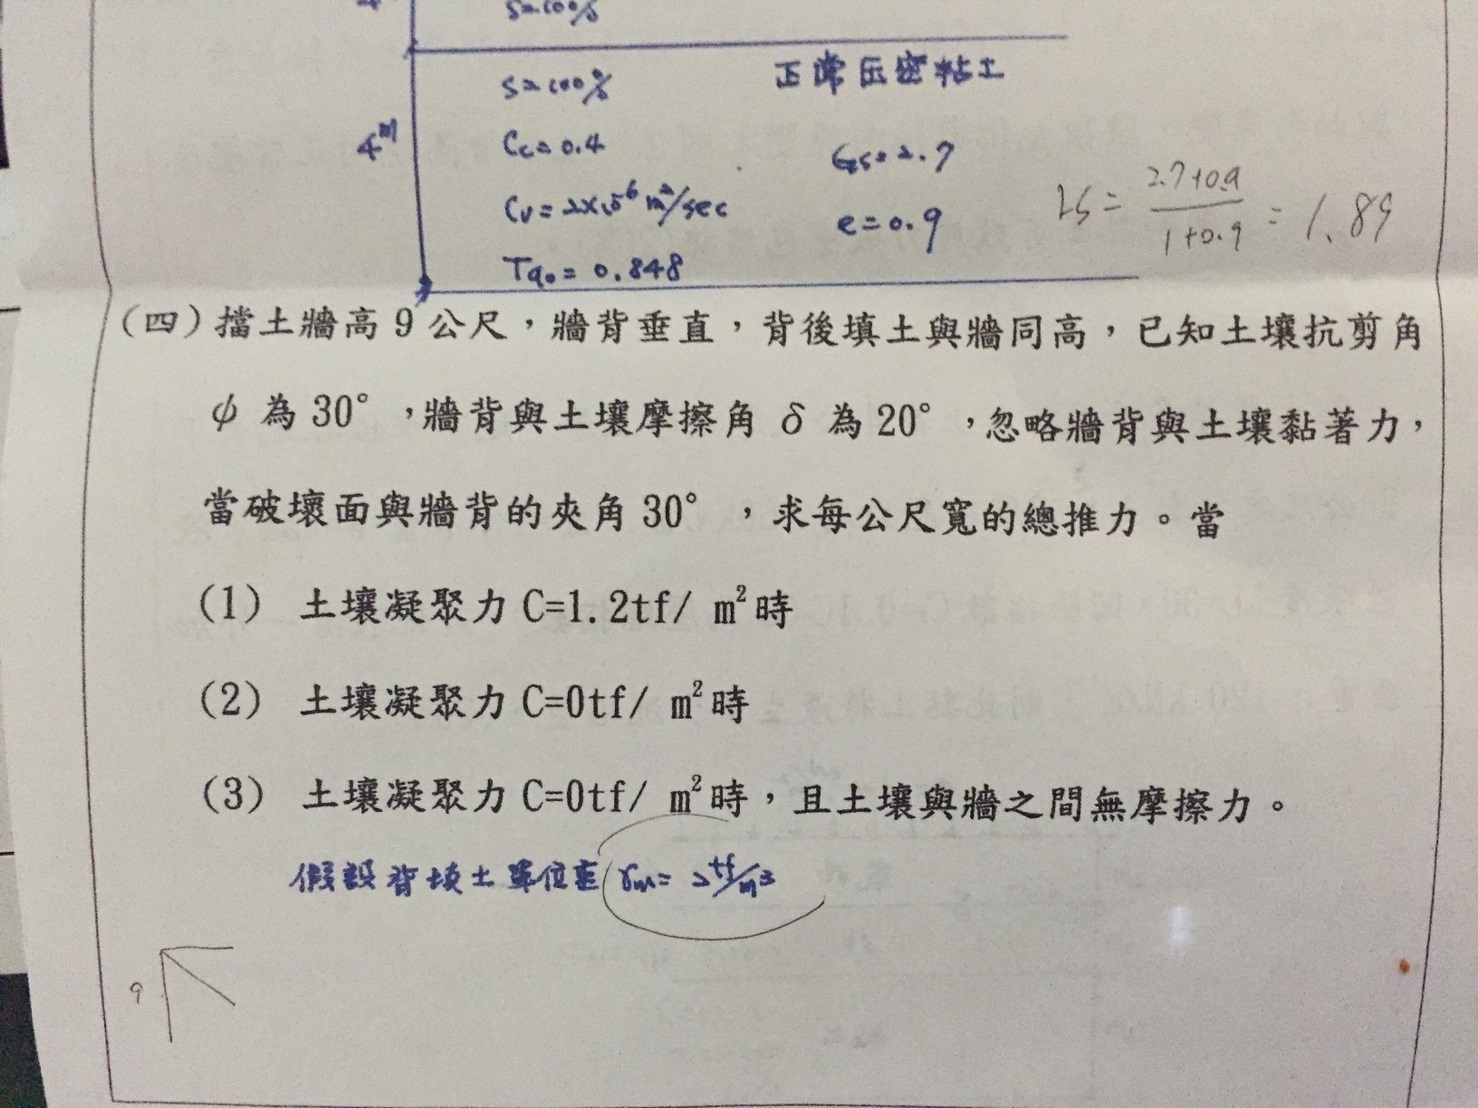 S=100%
S=100% 正常压密粘土
4m Cc=0.4 Gs=2.7
Cv=2×10⁻⁶ m²/sec e=0.9 rs = (2.7+0.9)/(1+0.9) = 1.89
T90=0.848
(四)擋土牆高9公尺,牆背垂直,背後填土與牆同高,已知土壤抗剪角
ψ 為 30°,牆背與土壤摩擦角 δ 為 20°,忽略牆背與土壤黏著力,
當破壞面與牆背的夾角 30°,求每公尺寬的總推力。當
(1) 土壤凝聚力 C=1.2tf/ m²時
(2) 土壤凝聚力 C=0tf/ m²時
(3) 土壤凝聚力 C=0tf/ m²時,且土壤與牆之間無摩擦力。
假設背填土單位重 γm= 2 tf/m³
9